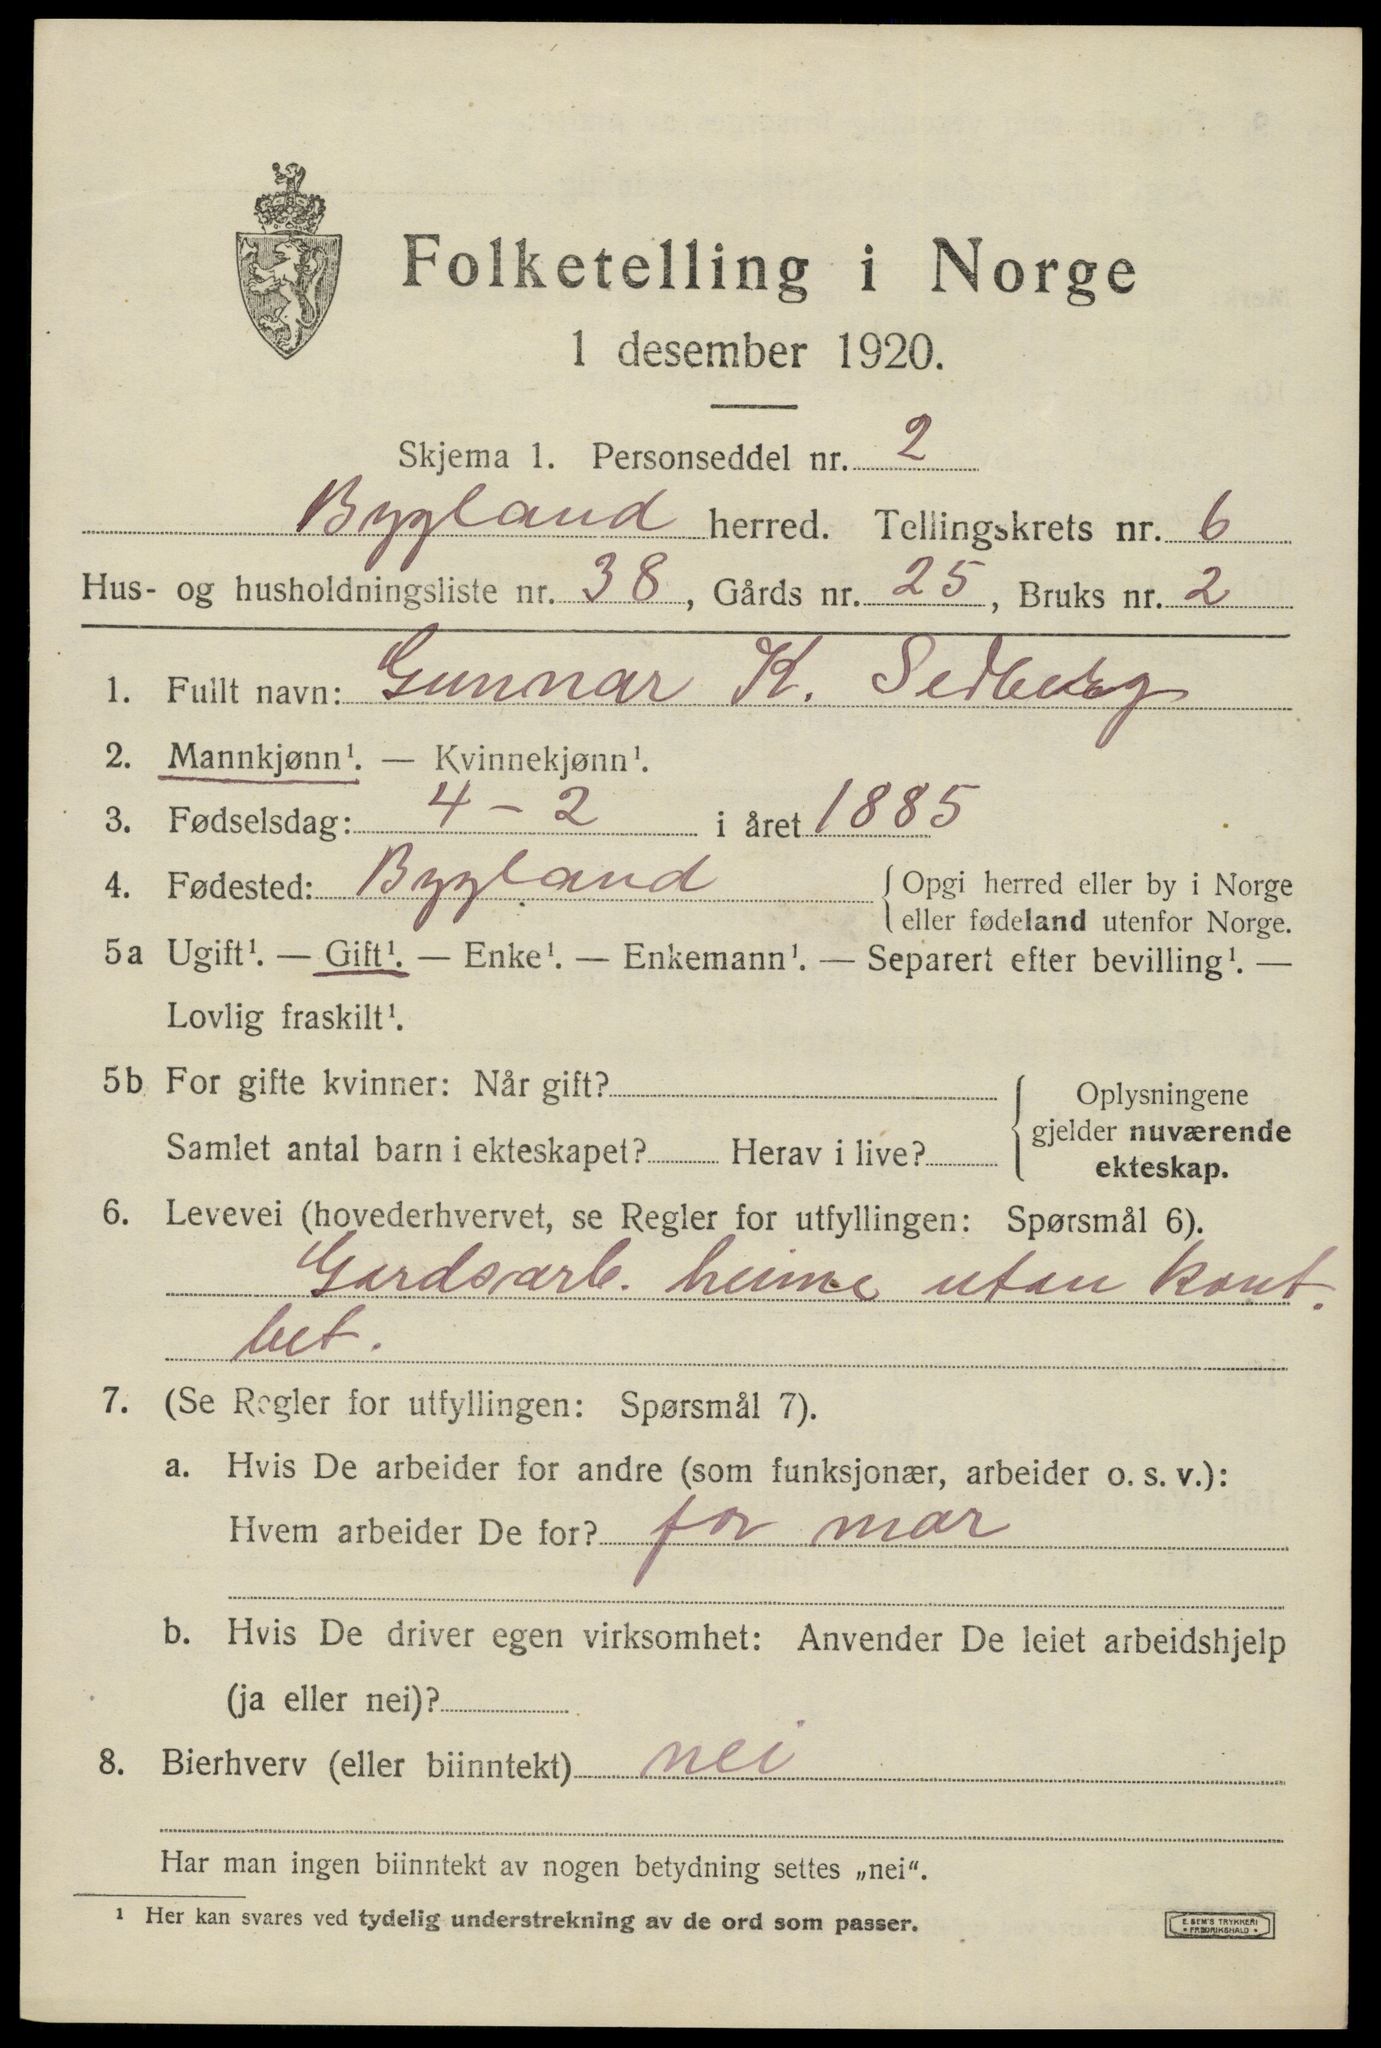 Folketelling i Norge
1 desember 1920.
Skjema 1. Personseddel nr. 2
Bygland herred. Tellingskrets nr. 6
Hus- og husholdningsliste nr. 38, Gårds nr. 25, Bruks nr. 2
1. Fullt navn: Gunnar K. Sedberg
2. Mannkjønn¹. — Kvinnekjønn¹.
3. Fødselsdag: 4 - 2 i året 1885
4. Fødested: Bygland {Opgi herred eller by i Norge
eller fødeland utenfor Norge.
5a Ugift¹. — Gift¹. — Enke¹. — Enkemann¹. — Separert efter bevilling¹. —
Lovlig fraskilt¹.
5b For gifte kvinner: Når gift?
Samlet antal barn i ekteskapet? Herav i live?
Oplysningene
gjelder nuværende
ekteskap.
6. Levevei (hovederhvervet, se Regler for utfyllingen: Spørsmål 6).
Gardsarb. heime utan kont.
bet.
7. (Se Regler for utfyllingen: Spørsmål 7).
a. Hvis De arbeider for andre (som funksjonær, arbeider o. s. v.):
Hvem arbeider De for? for mor
b. Hvis De driver egen virksomhet: Anvender De leiet arbeidshjelp
(ja eller nei)?
8. Bierhverv (eller biinntekt) nei
Har man ingen biinntekt av nogen betydning settes „nei“.
¹ Her kan svares ved tydelig understrekning av de ord som passer.
E. SEM'S TRYKKERI
• FREDRIKSHALD •